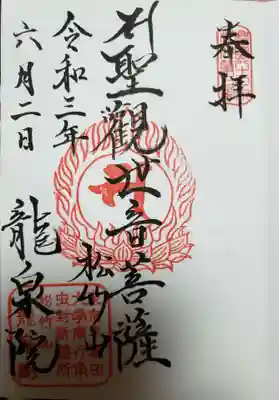 奉拝
聖觀世音菩薩
松竹山
令和三年
六月二日
龍泉院